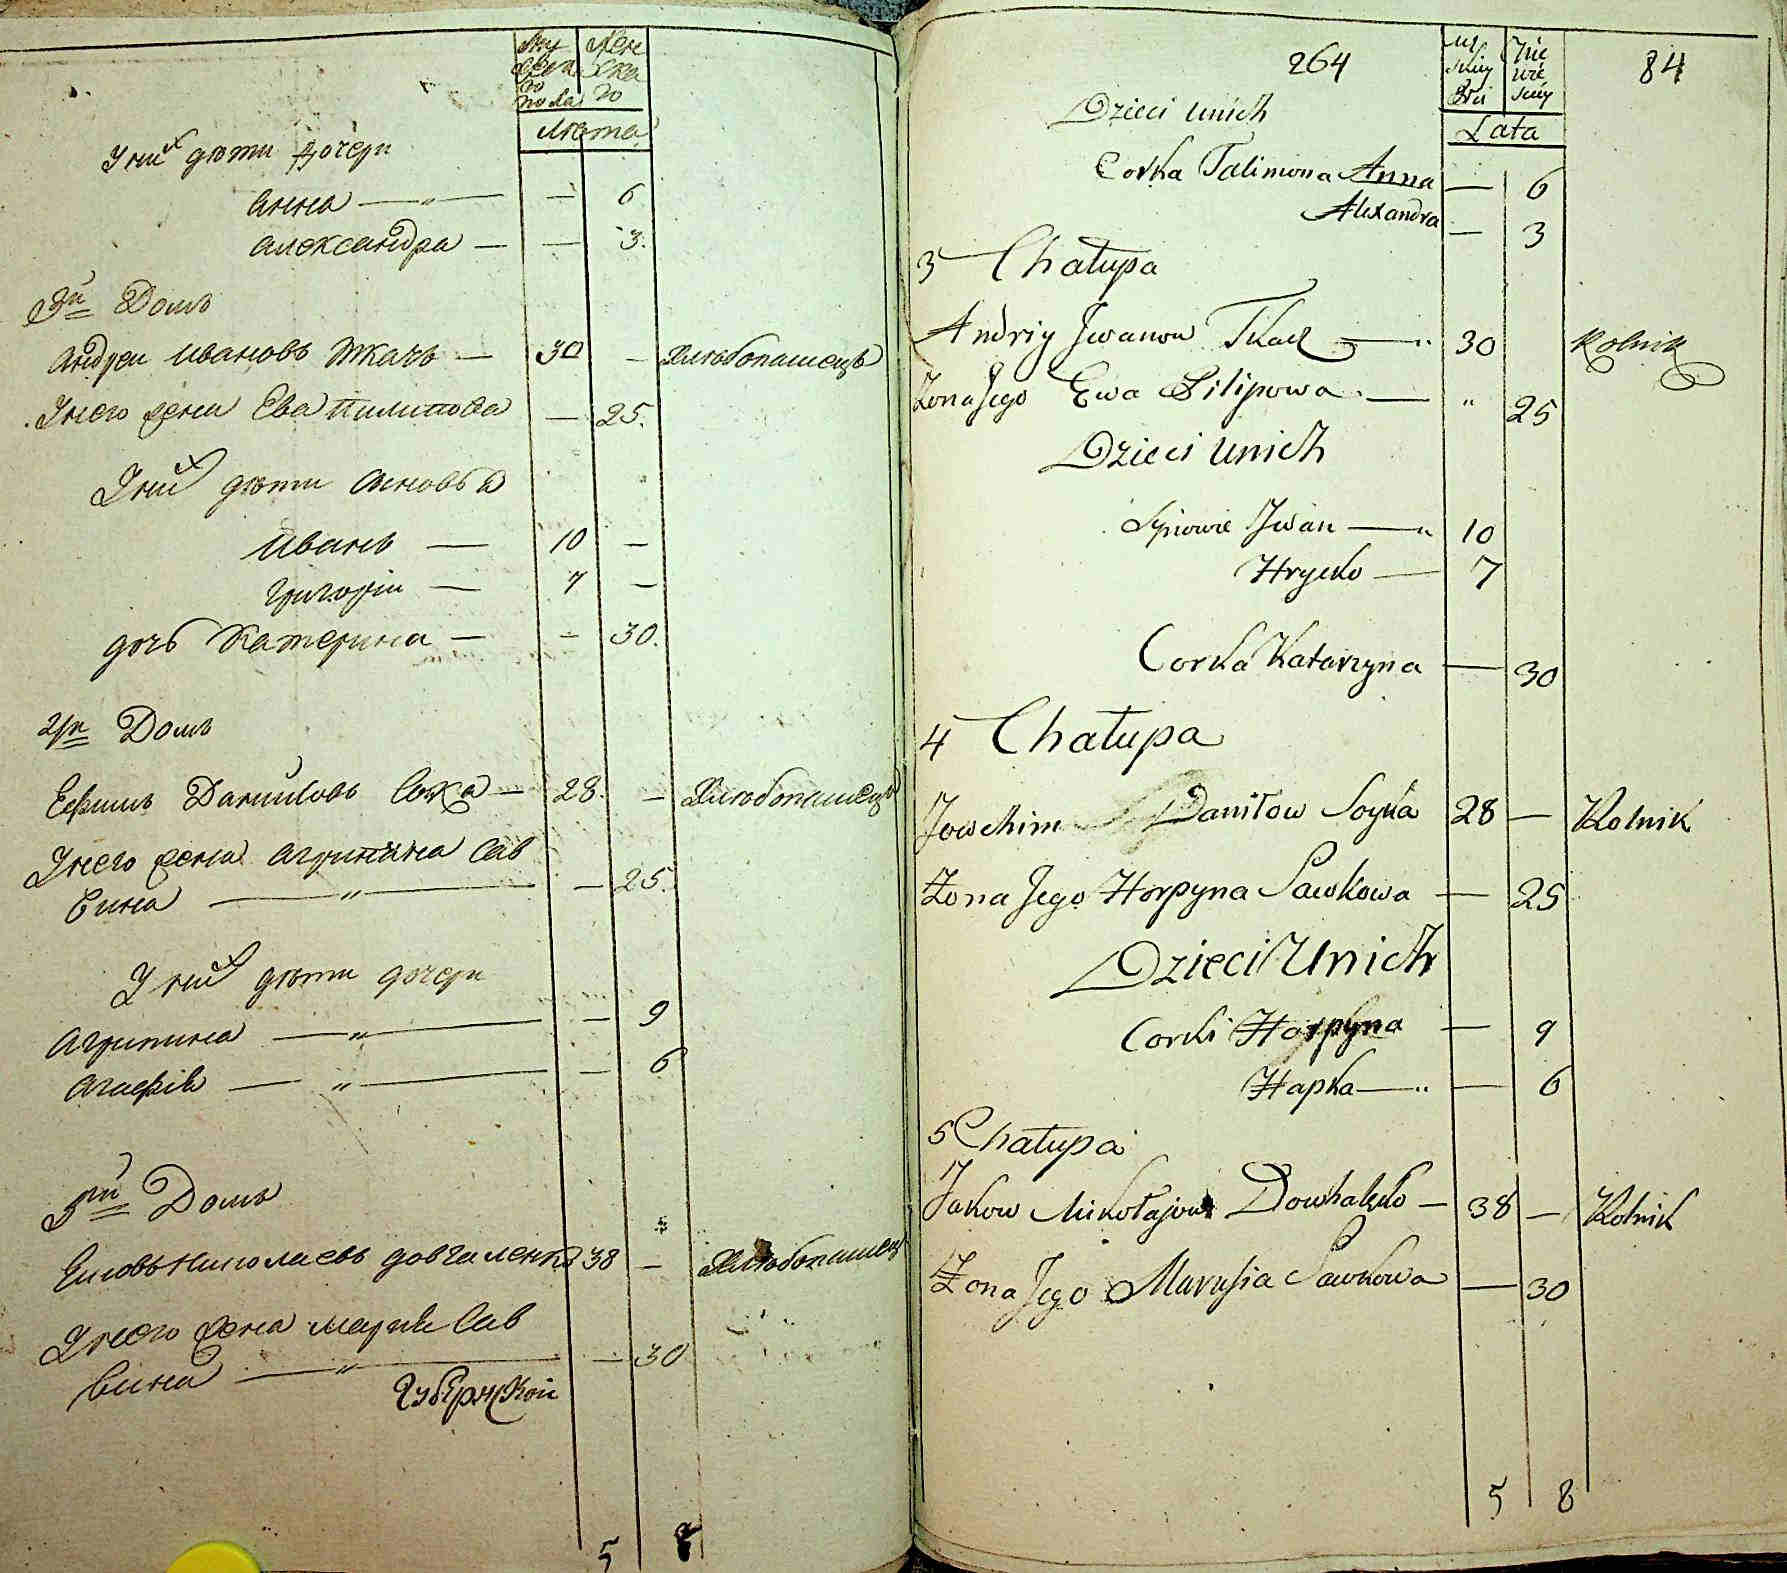 Мужеска го пола
Женска го
Лѣта
У них дѣти дочери
Анна — „ — — 6
Александра — — 3.
3й Домъ
Андреи Ивановъ Ткачъ — 30 — Хлѣбопашецъ
У него жена Ева Пилипова — 25.
У них дѣти сыновья
Иванъ — 10 —
Григоріи — 7 —
дочь Катерина — — 30.
4й Домъ
Ефимъ Даниловъ — 28. — Хлѣбопашецъ
У него жена Агрипина Сав
вина — „ — — 25.
У них дѣти дочери
Агрипина — „ — — 9
Агафія — „ — — 6
5й Домъ
Николаевъ Довгаленко 38 — Хлѣбопашец
У него жена Марія Сав
вина — „ — — 30
Губернской
5 8
264
84
Lata
Dzieci unich
Corka Talimona Anna — 6
Alexandra — 3
3 Chałupa
Andriy Jwanow Tkacz — „ 30 Rolnik
Zona Jego Ewa Filipowa — „ 25
Dzieci unich
Synowie Jwan — „ 10
Hrycko — 7
Corka Katarzyna — 30
4 Chałupa
Jowchim Daniłow Soyka 28 — Rolnik
Zona Jego Horpyna Sawkowa — 25
Dzieci Unich
Corki Horpyna — 9
Hapka — „ — 6
5 Chałupa
Jakow Mikołajow Dowhalko — 38 — Rolnik
Zona Jego Marusia Sawkowa — 30
5 8